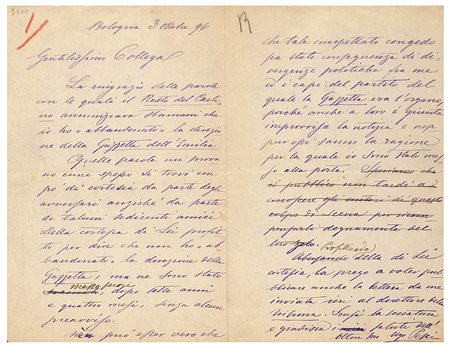 1
Bologna 3 ottobre 96
Gentilissimo Collega
La ringrazio delle parole
con le quali il Resto del Carli
no annunziava stamani che
io ho "abbandonato" la direzio
ne della Gazzetta dell'Emilia
Quelle parole mi prova
no come spesso si trovi un
po' di cortesia da parte degli
avversari anziché da parte
di taluni sedicenti amici
Della cortesia di Lei profit
to per dire che non ho "ab
bandonato" la direzione della
Gazzetta, ma ne sono stato
messo fuori
dopo sette anni
e quattro mesi, senza alcun
preavviso.
Né può esser vero che
che tale inaspettato congedo
sia stato conseguenza di di-
vergenze politiche fra me
ed i capi del partito del
quale la Gazzetta era l'organo,
perché anche a loro è giunta
improvvisa la notizia e non
per essi sanno la ragione
per la quale io sono stato mes
so alla porta. Speriamo che
il pubblico non tardi a
conoscere gli autori di questo
colpo di scena per
degnamente del
loro zelo. Profittando
della di Lei
cortesia, la prego a voler pub
blicare anche la lettera da me
inviata ieri al direttore della
Tribuna. Scusi la seccatura
e gradisca i saluti dell'
Ugo Pesci